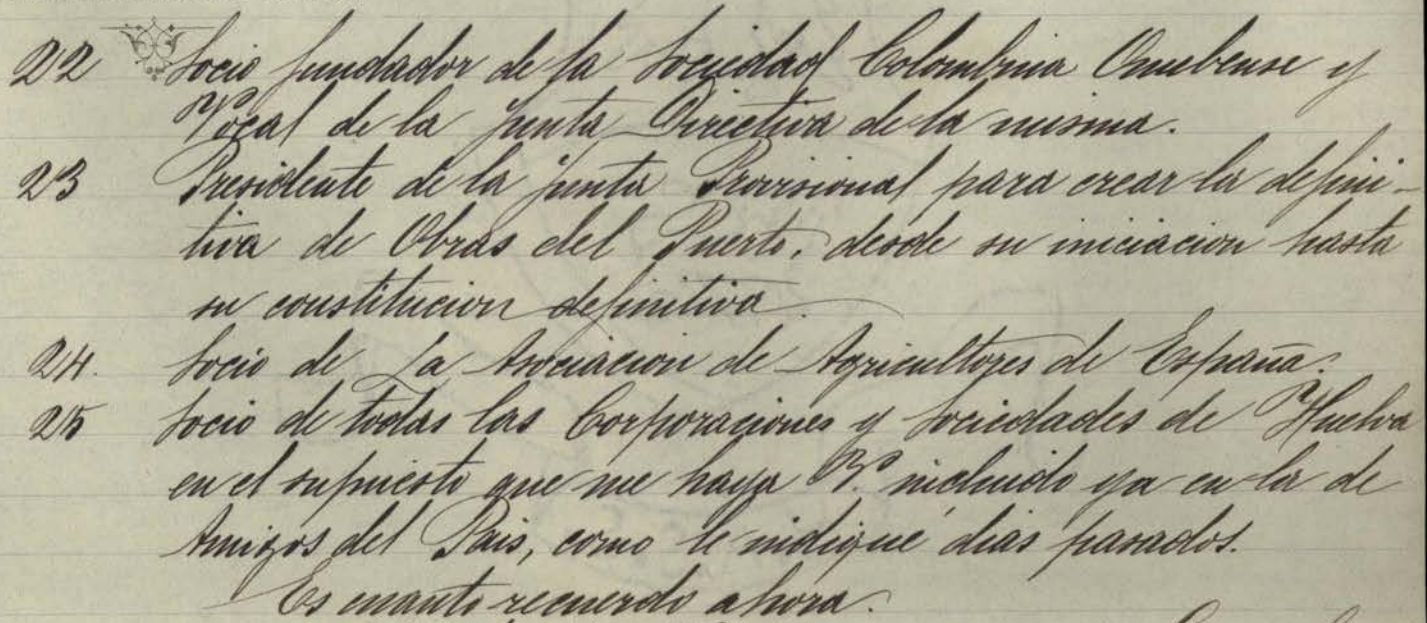 22 Socio fundador de la Sociedad Colombina Onubense y
Vocal de la Junta Directiva de la misma.
23 Presidente de la Junta Provisional para crear la defini-
tiva de Obras del Puerto, desde su iniciacion hasta
su constitucion definitiva.
24. Socio de la Asociacion de Agricultores de España.
25 Socio de todas las Corporaciones y Sociedades de Huelva
en el supuesto que me haya V. incluido ya en la de
Amigos del Pais, como le indiqué dias pasados.
Es cuanto recuerdo ahora.